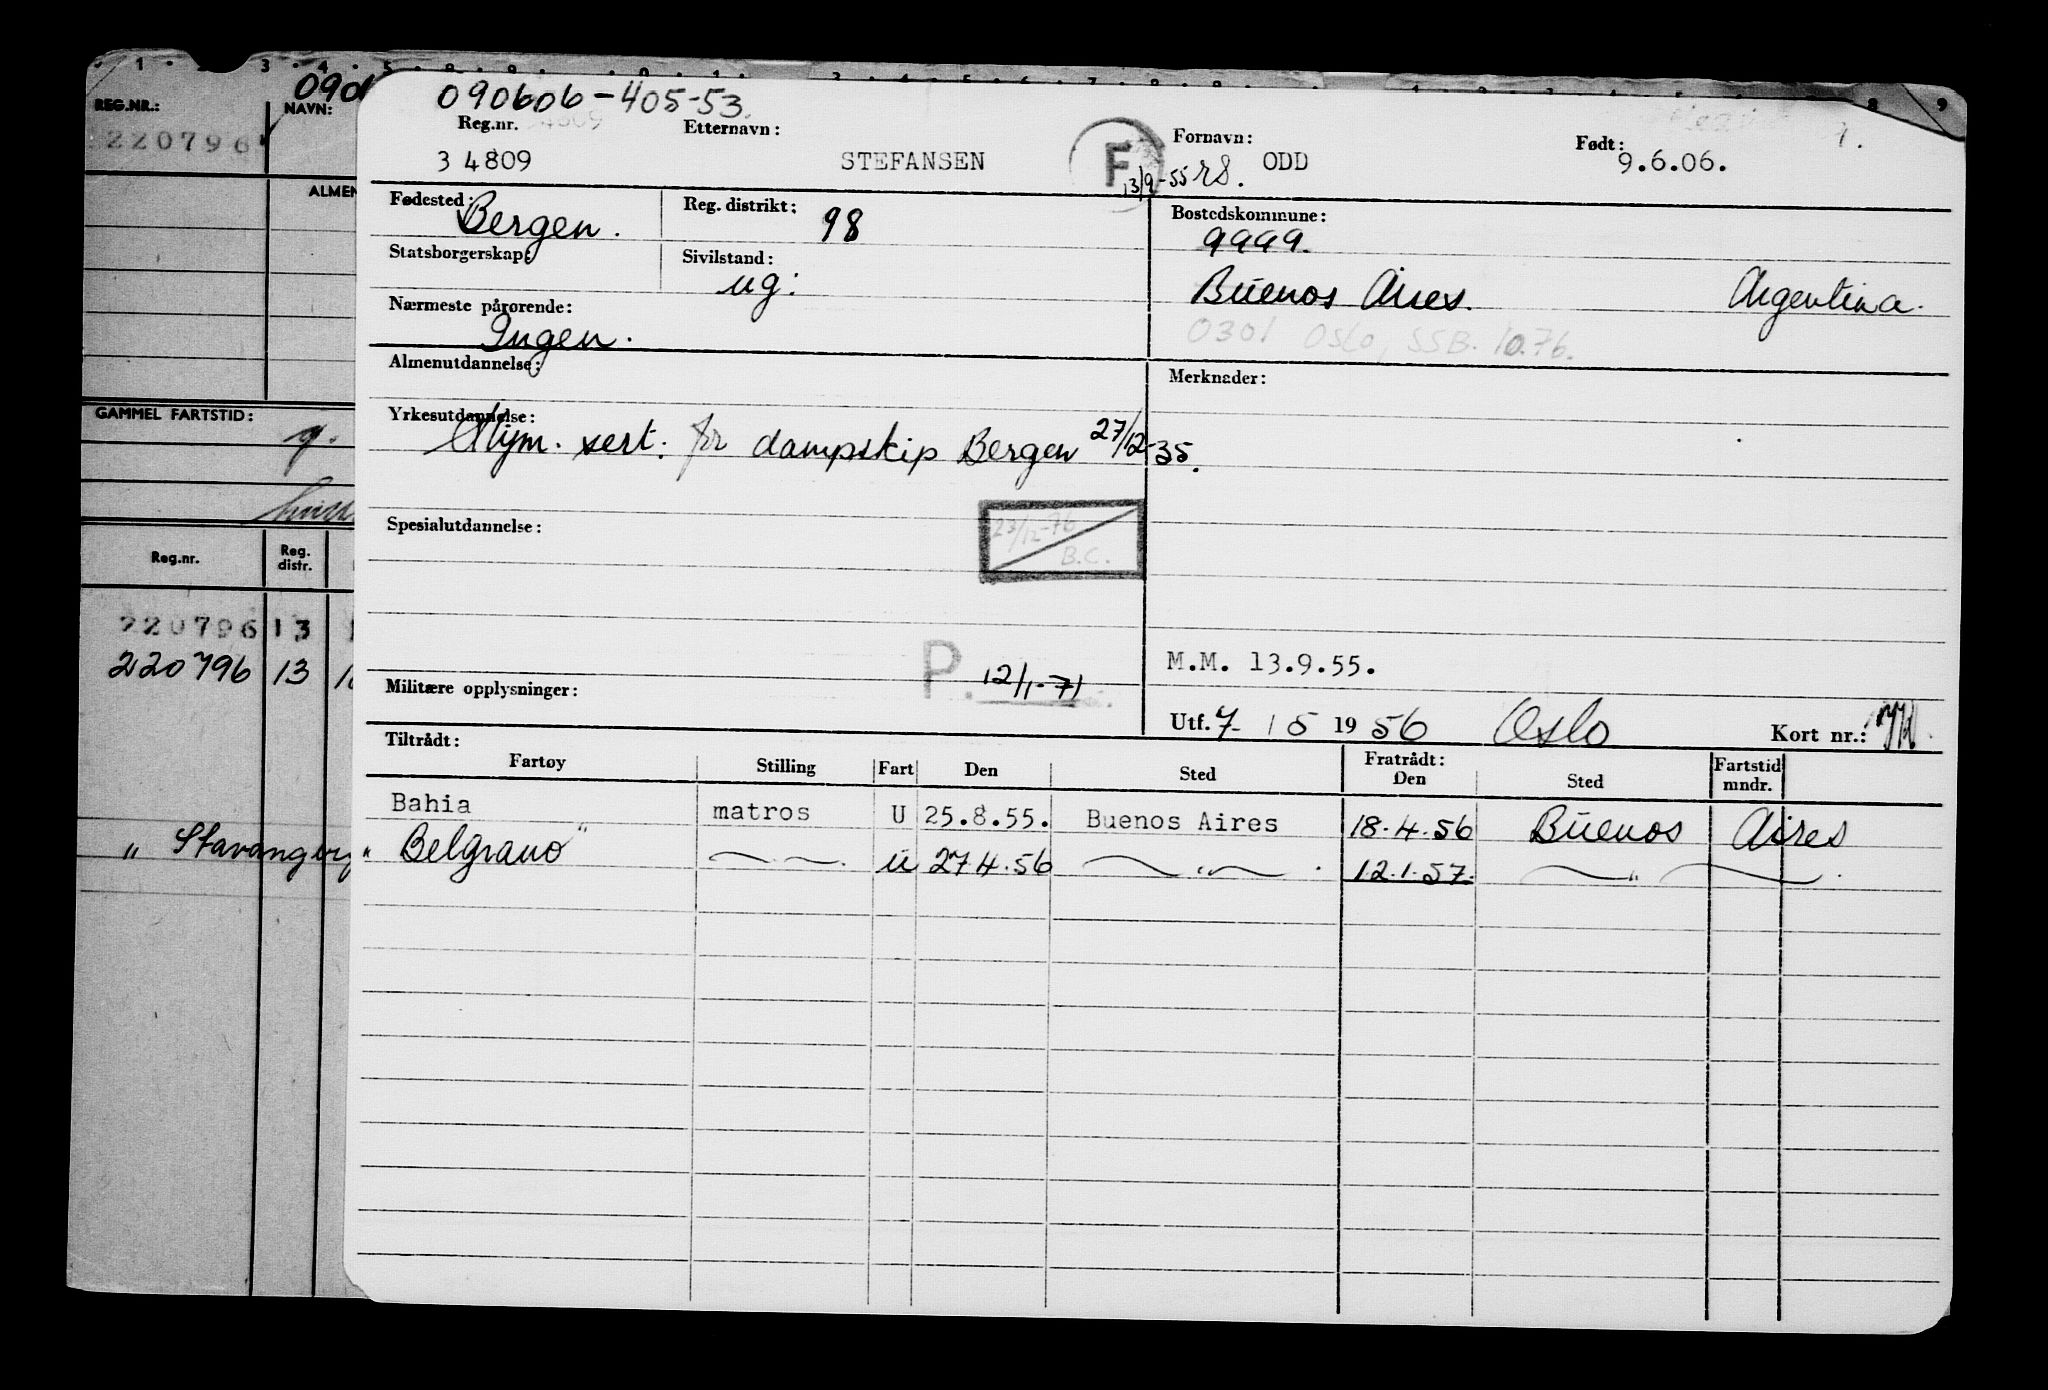 090606-405-53.
Reg.nr. Etternavn: Fornavn: Født:
3 4809 STEFANSEN F 13/9-55 rs. ODD 9.6.06.
Fødested: Bergen. Reg. distrikt: 98 Bostedskommune: 9999.
Statsborgerskap: Sivilstand: ug. Buenos Aires. Argentina.
Nærmeste pårørende: Ingen. 0301 Oslo, SSB. 10.76.
Almenutdannelse: Merknader:
Yrkesutdannelse:
sert. for dampskip Bergen 27/12-35.
Spesialutdannelse: 23/12-76 B.C.
P. 12/1-71
M.M. 13.9.55.
Militære opplysninger:
Utf. 7 / 5 1956 Oslo Kort nr.:
Tiltrådt: Fratrådt:
Fartøy Stilling Fart Den Sted Den Sted Fartstid mndr.
Bahia matros U 25.8.55. Buenos Aires 18.4.56 Buenos Aires
Belgrano " u 27.4.56 " 12.1.57. "
REG.NR.: NAVN:
220796
ALMEN
GAMMEL FARTSTID:
g.
Reg.nr. Reg. distr.
220796 13
220796 13
" Stavanger